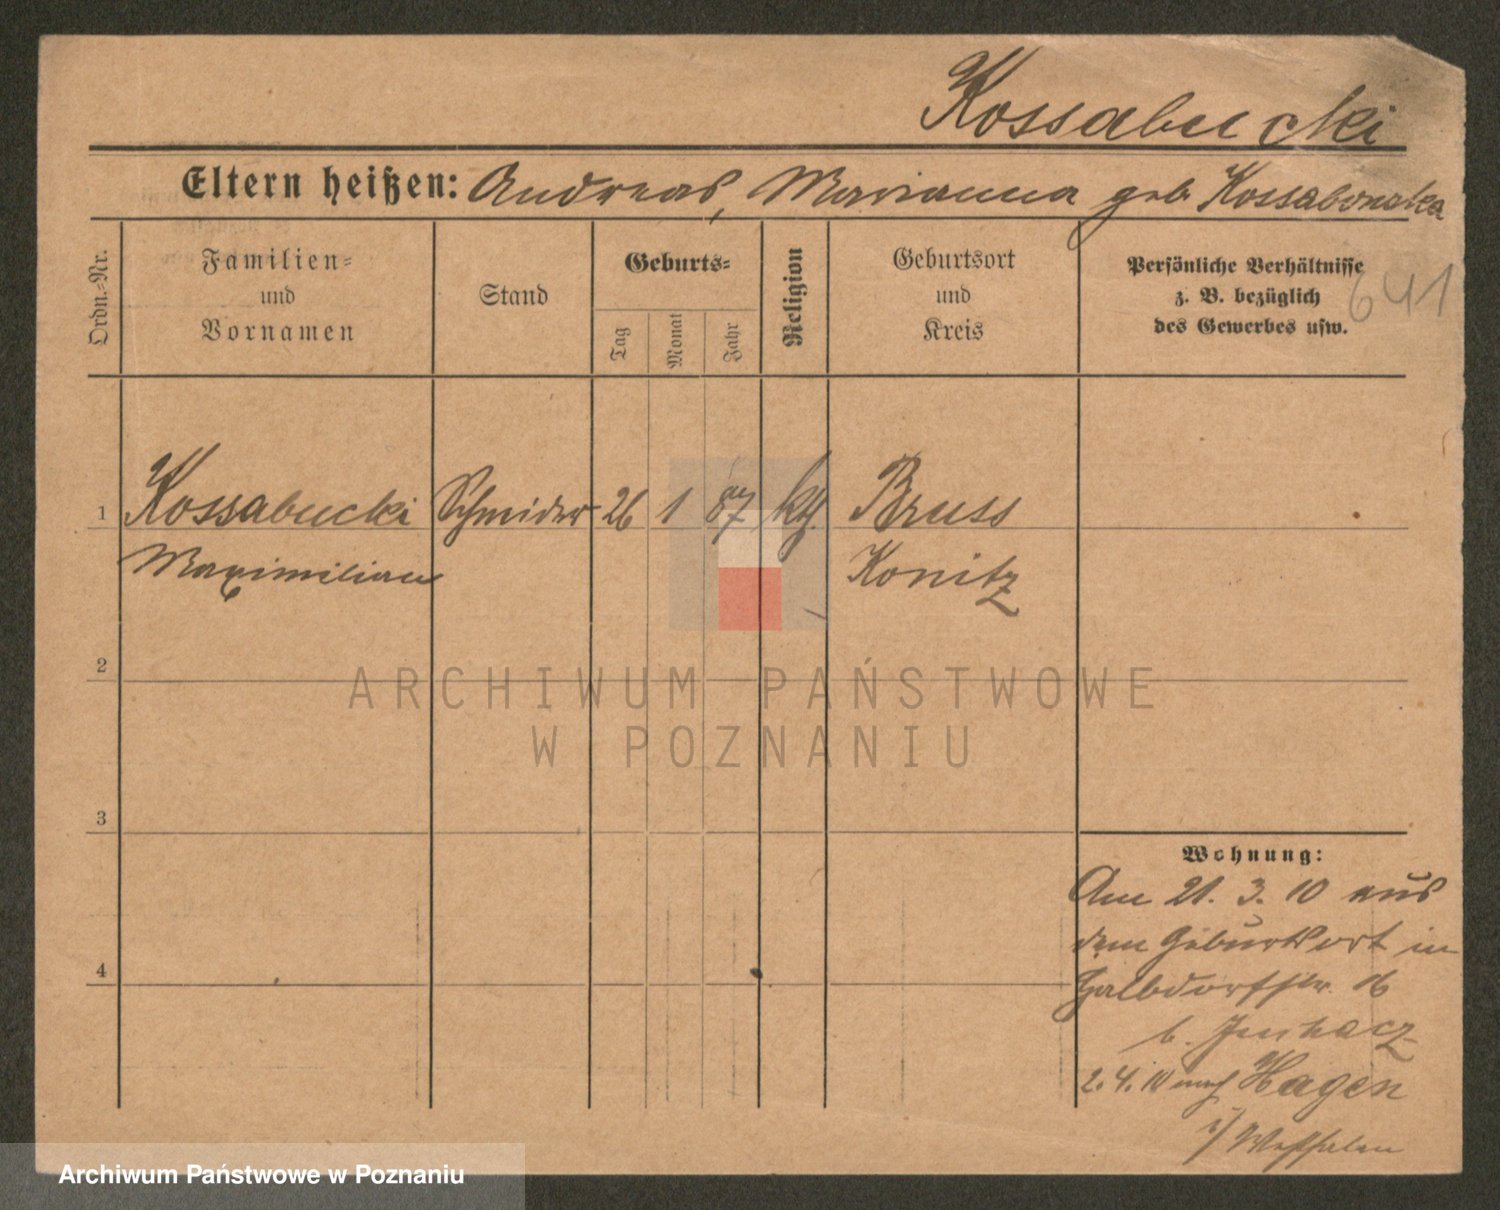 Kossabucki
Eltern heißen: Andreas, Marianna geb. Kossabowska
Ordn.-Nr.
Familien-
und
Vornamen
Stand
Geburts-
Tag
Monat
Jahr
Religion
Geburtsort
und
Kreis
Persönliche Verhältnisse
z. B. bezüglich
des Gewerbes usw.
641
1 Kossabucki Schneider 26 1 87 kth. Bruss
Maximilian Konitz
2
ARCHIWUM PAŃSTWOWE
W POZNANIU
3
Wohnung:
Am 21. 3. 10 aus
dem Geburtsort in
Halbdorfstr. 16
4
b.
2. 4. 10 nach Hagen
i/ Westfalen
Archiwum Państwowe w Poznaniu